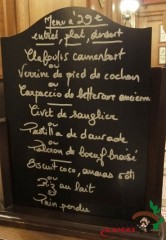 Menu à 29€
entrée, plat, dessert
Clafoutis camembert
ou
Verrine de pied de cochon
ou
Carpaccio de betterave ancienne
Civet de sanglier
ou
Pastilla de daurade
ou
de boeuf braisé
Biscuit coco, ananas rôti
ou
Riz au lait
ou
Pain perdu